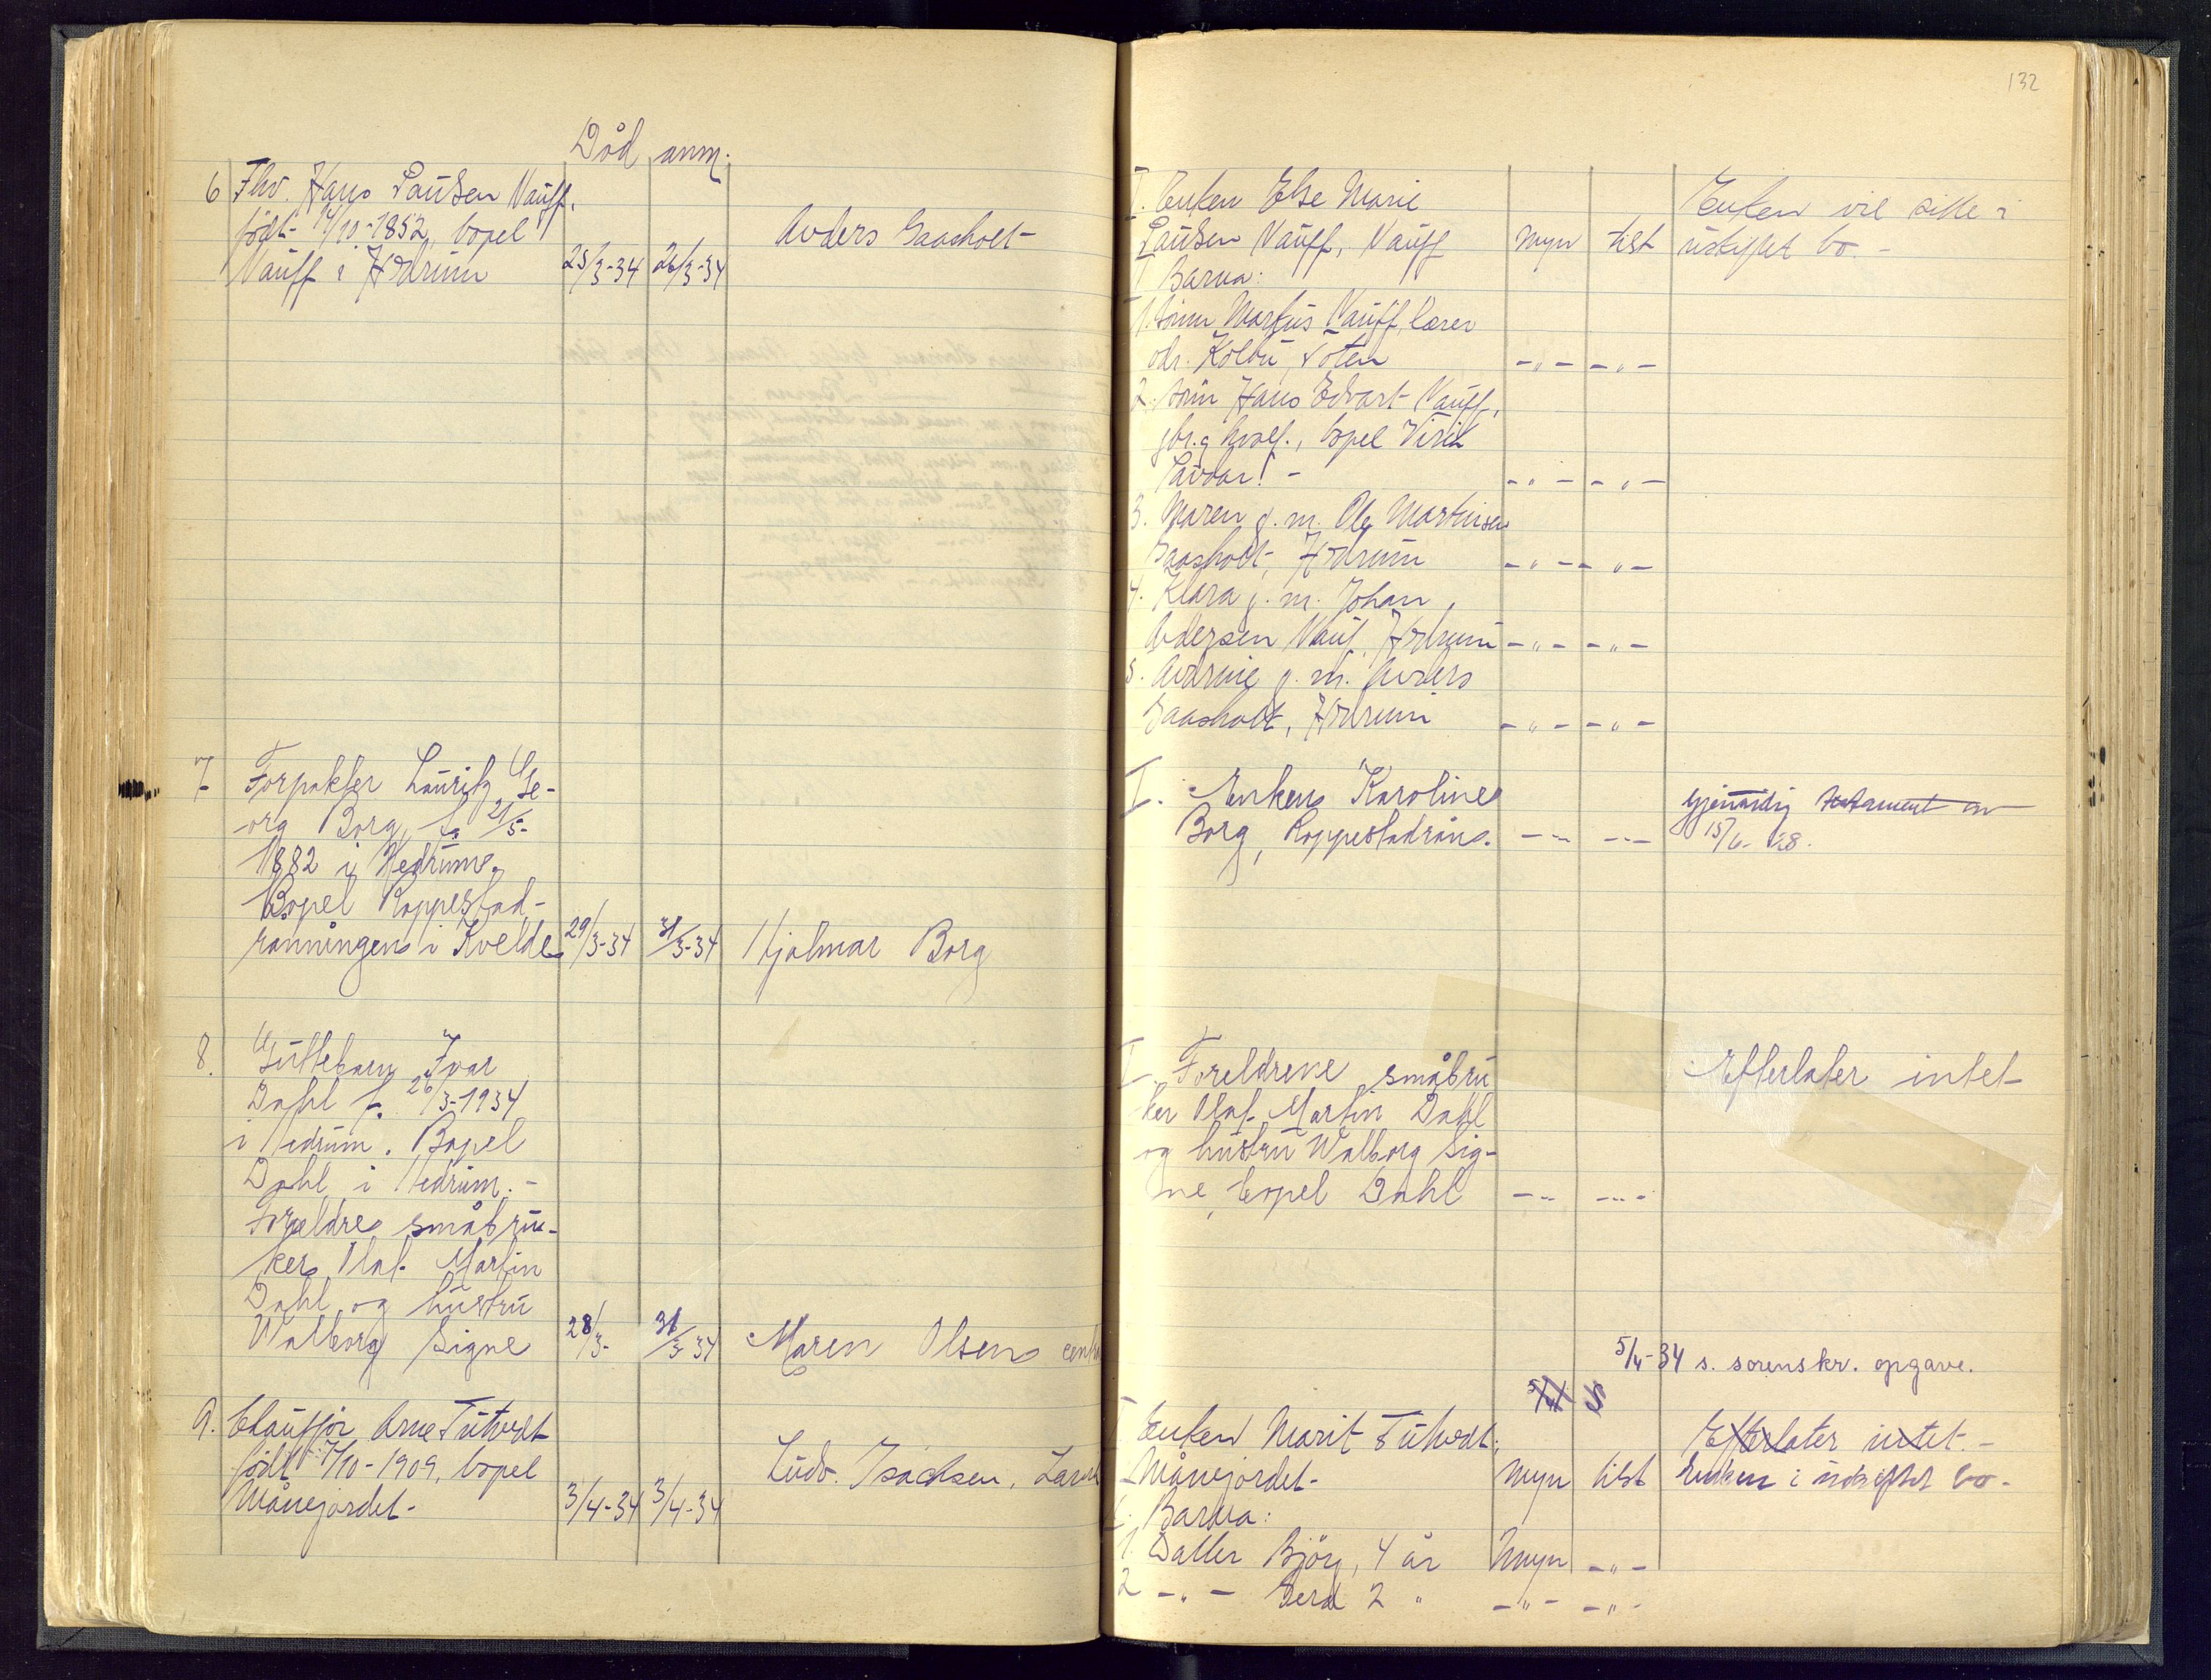 132
Död anm.
6 Fhv. Hans Paulsen Nauff,
født 14/10-1852, bopel
Nauff i Hedrum 25/3-34 26/3-34 Anders Gaasholt
I. Enken Else Marie
Paulsen Nauff, Nauff myn tilst
Enken vil sitte i
uskiftet bo. -
Barna:
1. sönn Markus Nauff, lærer
adr. Kolbu, Toten -"- -"-
2. sönn Hans Edvart Nauff,
gbr. bopel
-"- -"-
3. Maren g. m. Ole Martinsen
Gaasholt, Hedrum -"- -"-
4. Klara g. m. Johan
Andersen Nauf, Hedrum -"- -"-
5. g. m. Anders
Gaasholt, Hedrum -"- -"-
7 Forpakter Lauritz Ge-
org Borg, f. 21/5-
1882 i Hedrum.
Bopel Roppestad-
ranningen i Kvelde 29/3-34 31/3-34 Hjalmar Borg
I. Enken Karoline
Borg, Roppestadrön. -"- -"-
Gjensidig testament av
15/6-28.
8. Guttebarn Ivar
Dahl f. 26/3-1934
i Hedrum. Bopel
Dahl i Hedrum. -
Foreldre småbru-
ker Olaf Martin
Dahl og hustru
Walborg Signe 28/3- 31/3-34 Maren Olsen
I Foreldrene småbru
ker Olaf Martin Dahl
og hustru Walborg Sig-
ne, bopel Dahl -"- -"-
Efterlater intet
5/4-34 s. sorenskr. opgave.
9. Chauffør Arne Tutvedt
født 7/10-1909, bopel
Månejordet- 3/4-34 3/4-34 Ludv. Isachsen,
I Enken Marit Tutvedt,
Månejordet- myn tilst
Efterlater intet. -
Enken i uskiftet bo-
Barna:
1. Datter Björg, 4 år Umyn -"-
2 -"- Gerd 2 " -"- -"-